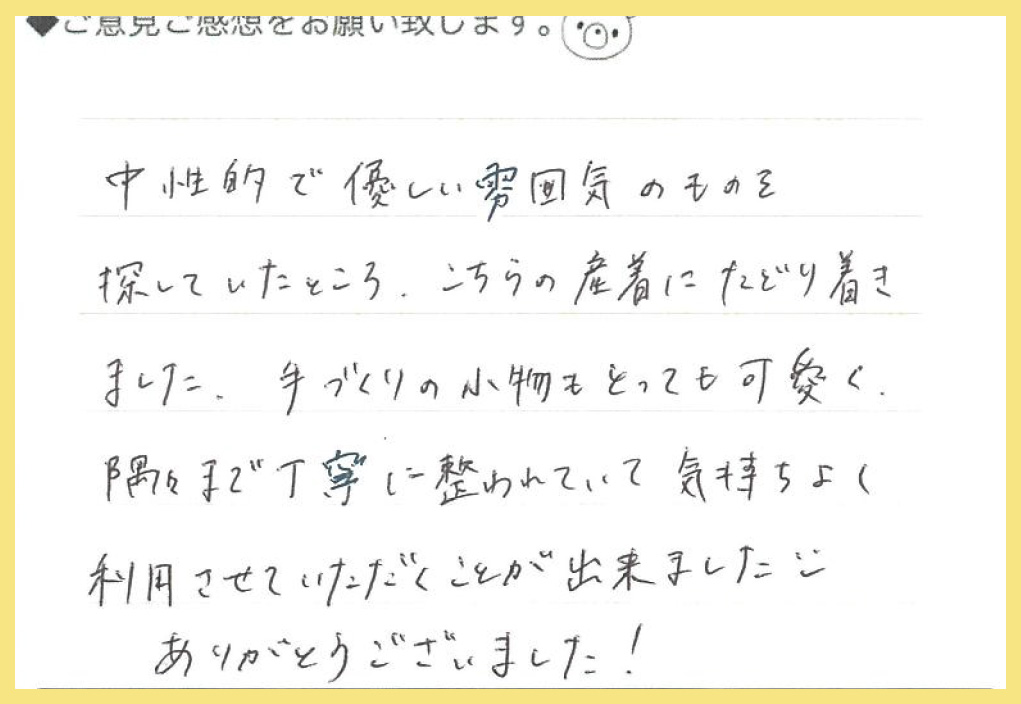 ◆ご意見ご感想をお願い致します。
中性的で優しい雰囲気のものを
探していたところ、こちらの産着にたどり着き
ました。手づくりの小物もとっても可愛く、
隅々まで丁寧に整われていて気持ちよく
利用させていただくことが出来ました
ありがとうございました!